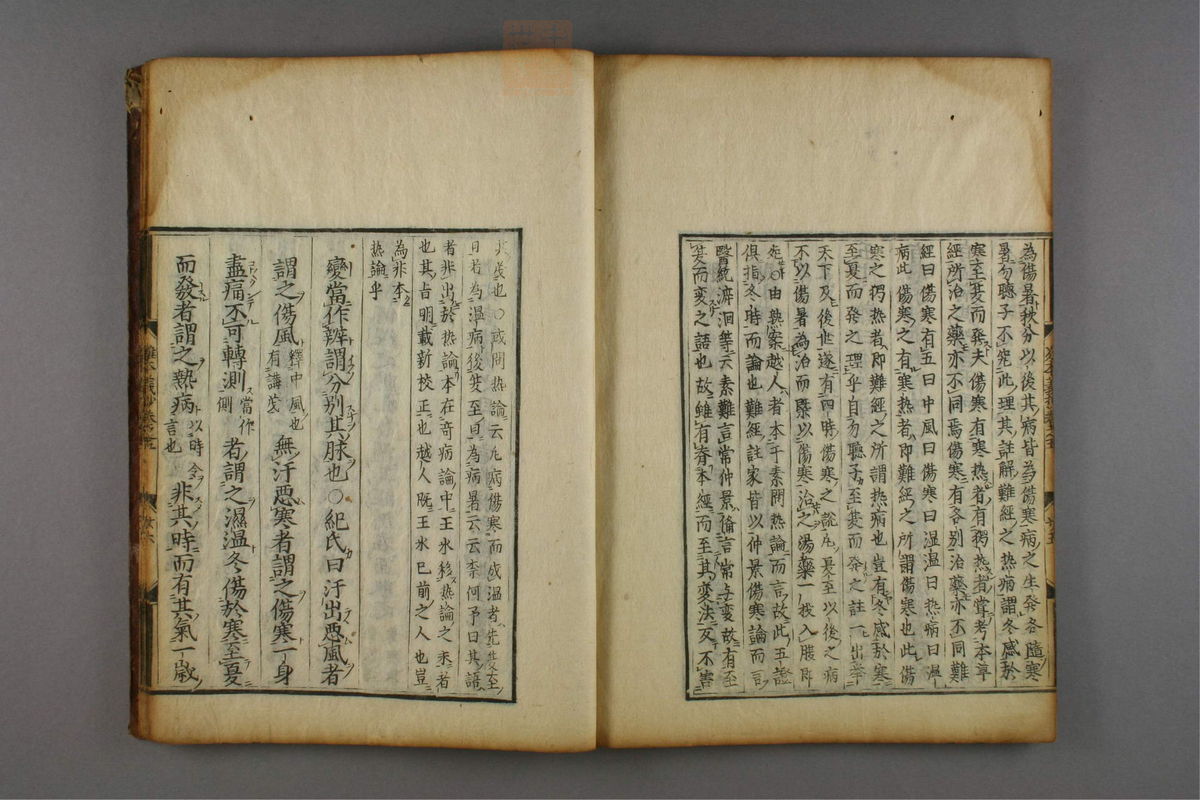 為傷暑秋分以後其病皆為傷寒病之生發各隨寒
暑勿聽子不究此理其註解難經之熱病謂冬感於
寒至夏而発夫傷寒有寒热者有熱者當考本草
經所治之藥亦不同焉傷寒有各別治藥亦不同難
經曰傷寒有五曰中風曰傷寒曰湿温曰热病曰温
病此傷寒之有寒热者即難經之所謂傷寒也此傷
寒之热者即難經之所謂热病也豈有冬感於寒
至夏而發之理乎自勿聽子至夏而発之註一出举
天下及後世遂有四時傷寒之說凡夏至以後之病
不以傷暑為治而槩以傷寒治之湯藥一我入腹即
死○由熱案越人者本于素問热論而言故此五證
俱指冬時而論也難經註家皆以仲景傷寒論而言
醫統泝洄等云素難言常仲景俻言常与変故有至
夏而変之語也故雖有脊本經而至其変法又不害
也○或問热論云凡病傷寒而成温者先夏至
日者為温病後夏至日為病暑云云柰何予曰其語
者非出於热論本在奇病論中王氷移热論之末者
也其㫖明載新校正也越人既王氷已前之人也豈
為非本
热論乎
變當作辨謂分別其脉也○紀氏曰汗出悪風者
謂之傷風釋中風也有講義無汗悪寒者謂之傷寒一身
盡痛不可轉測當作側者謂之濕温冬傷於寒至夏
而發者謂之熱病以時言也非其時而有其氣一歳